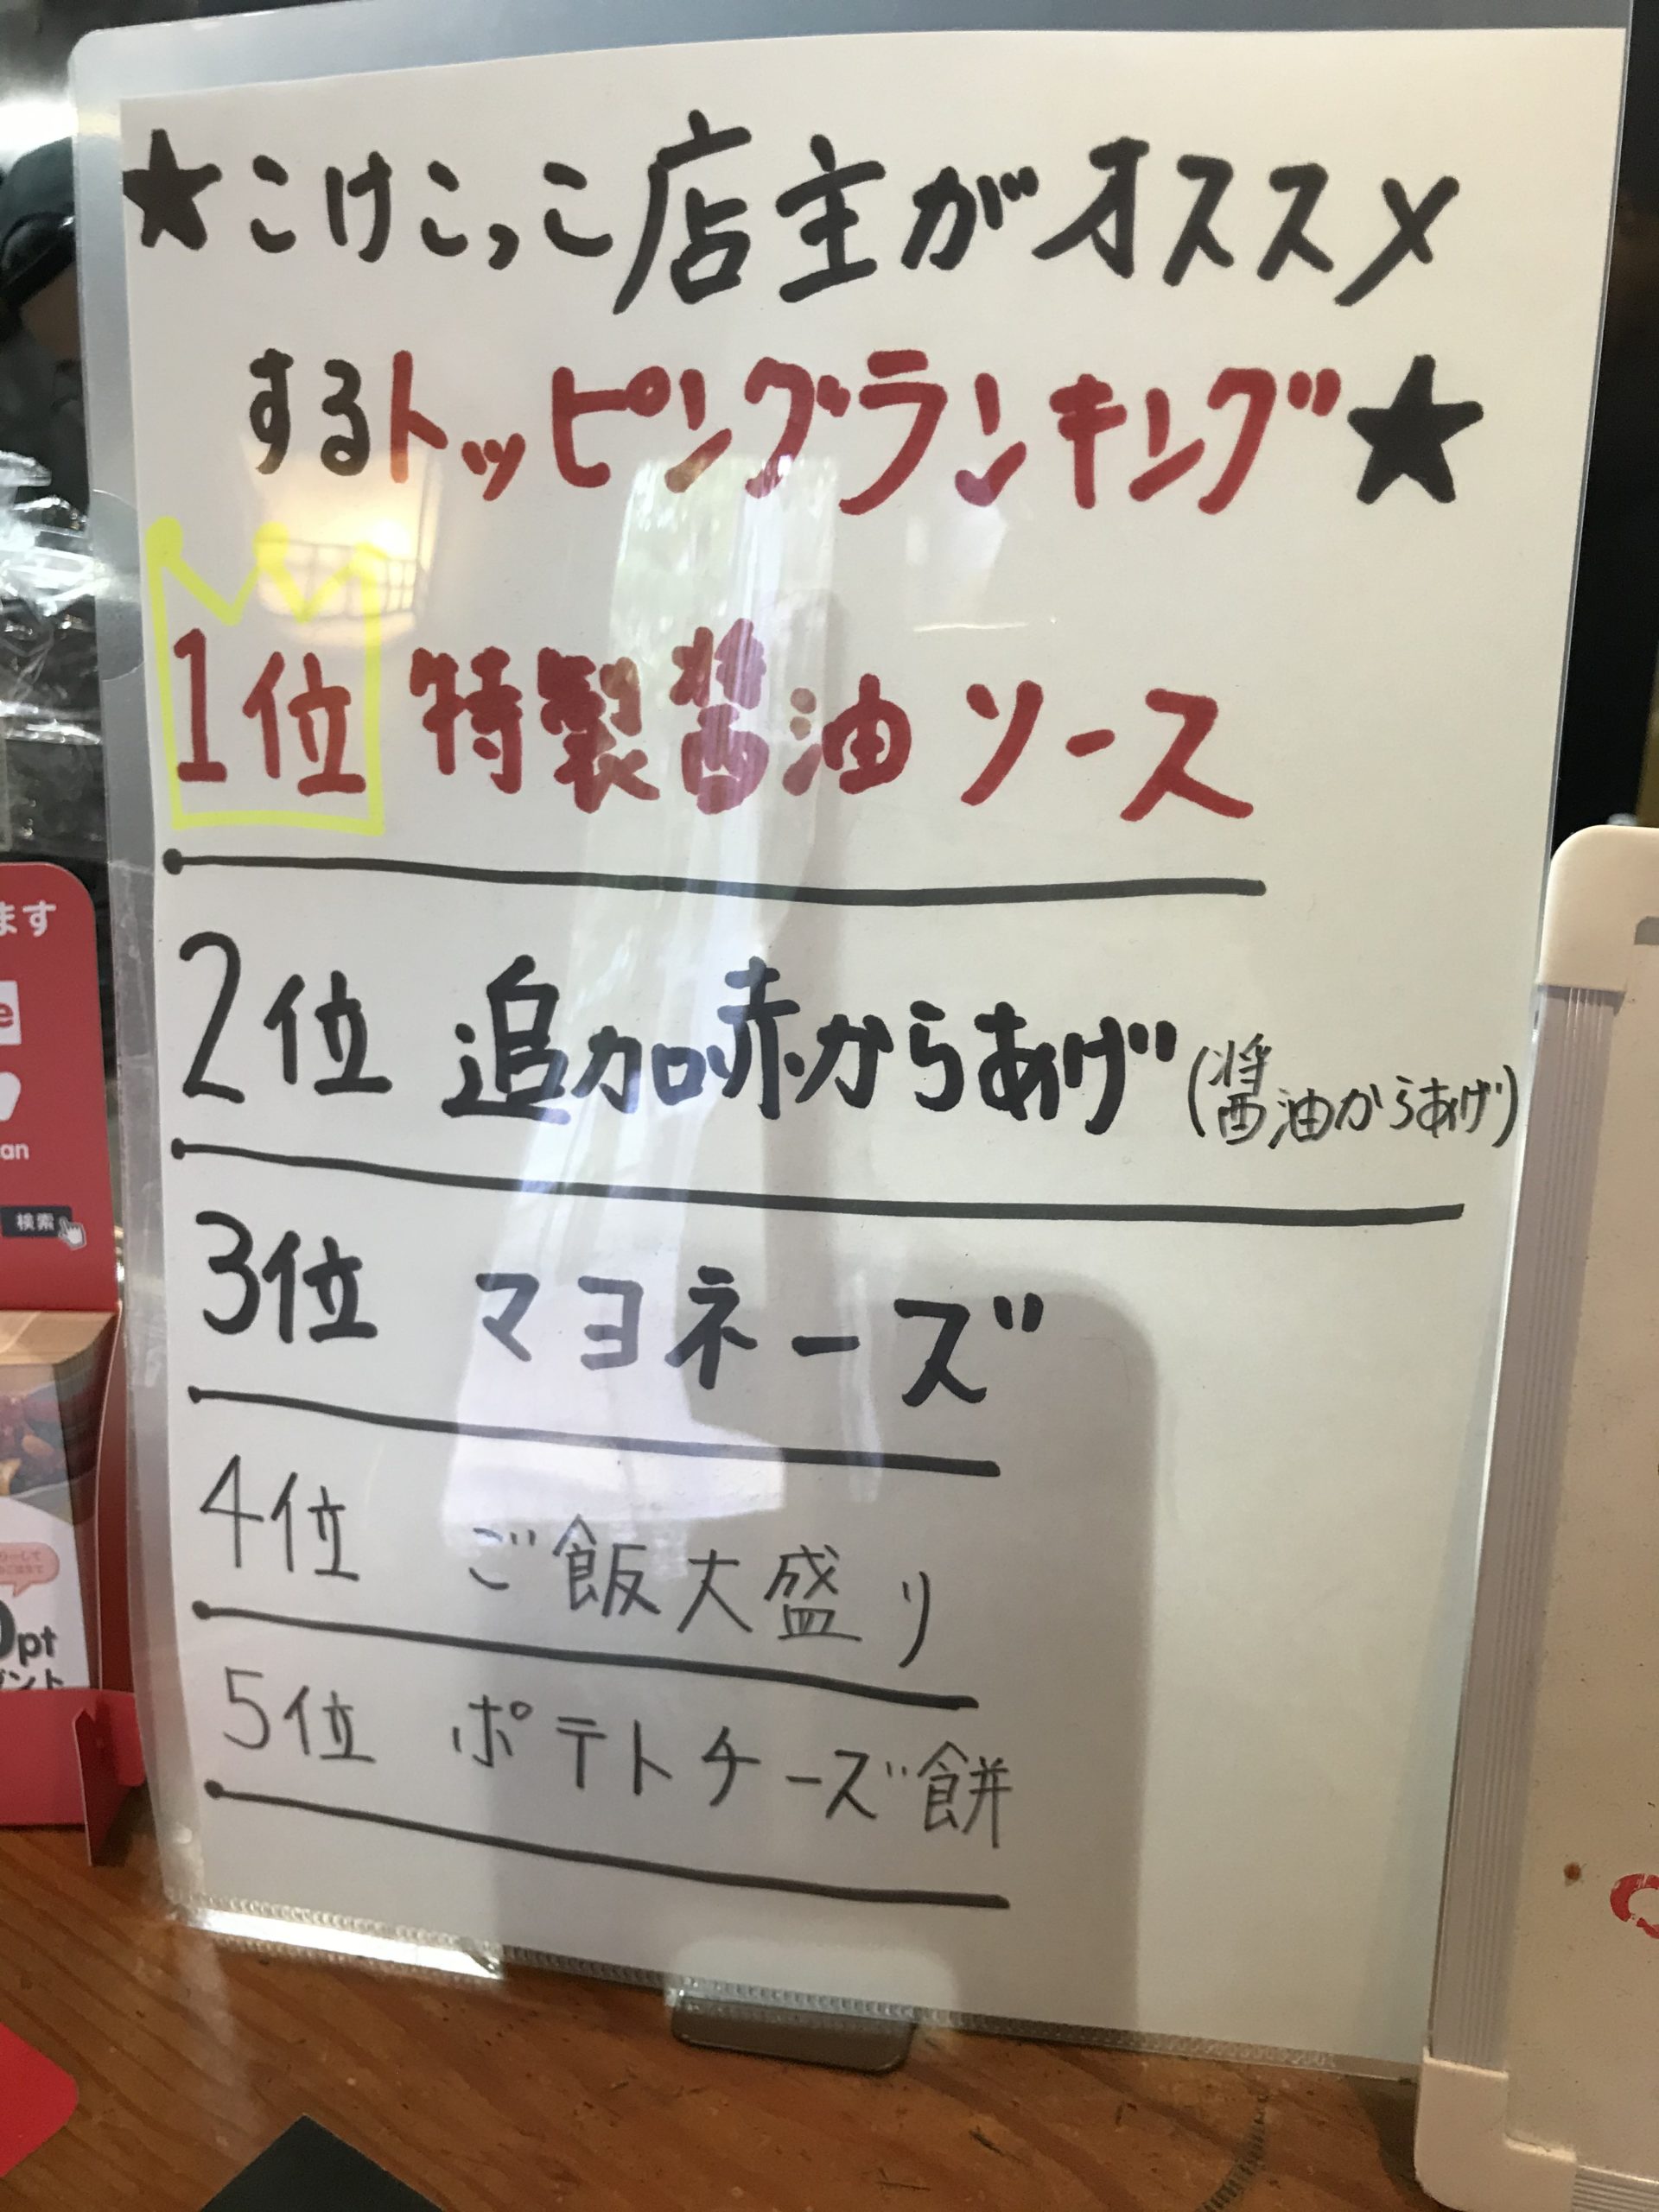 ★こけこっこ店主がオススメ
するトッピングランキング★
1位 特製醤油ソース
2位 追加赤からあげ(醤油からあげ)
3位 マヨネーズ
4位 ご飯大盛り
5位 ポテトチーズ餅
ます
e
an
検索
pt